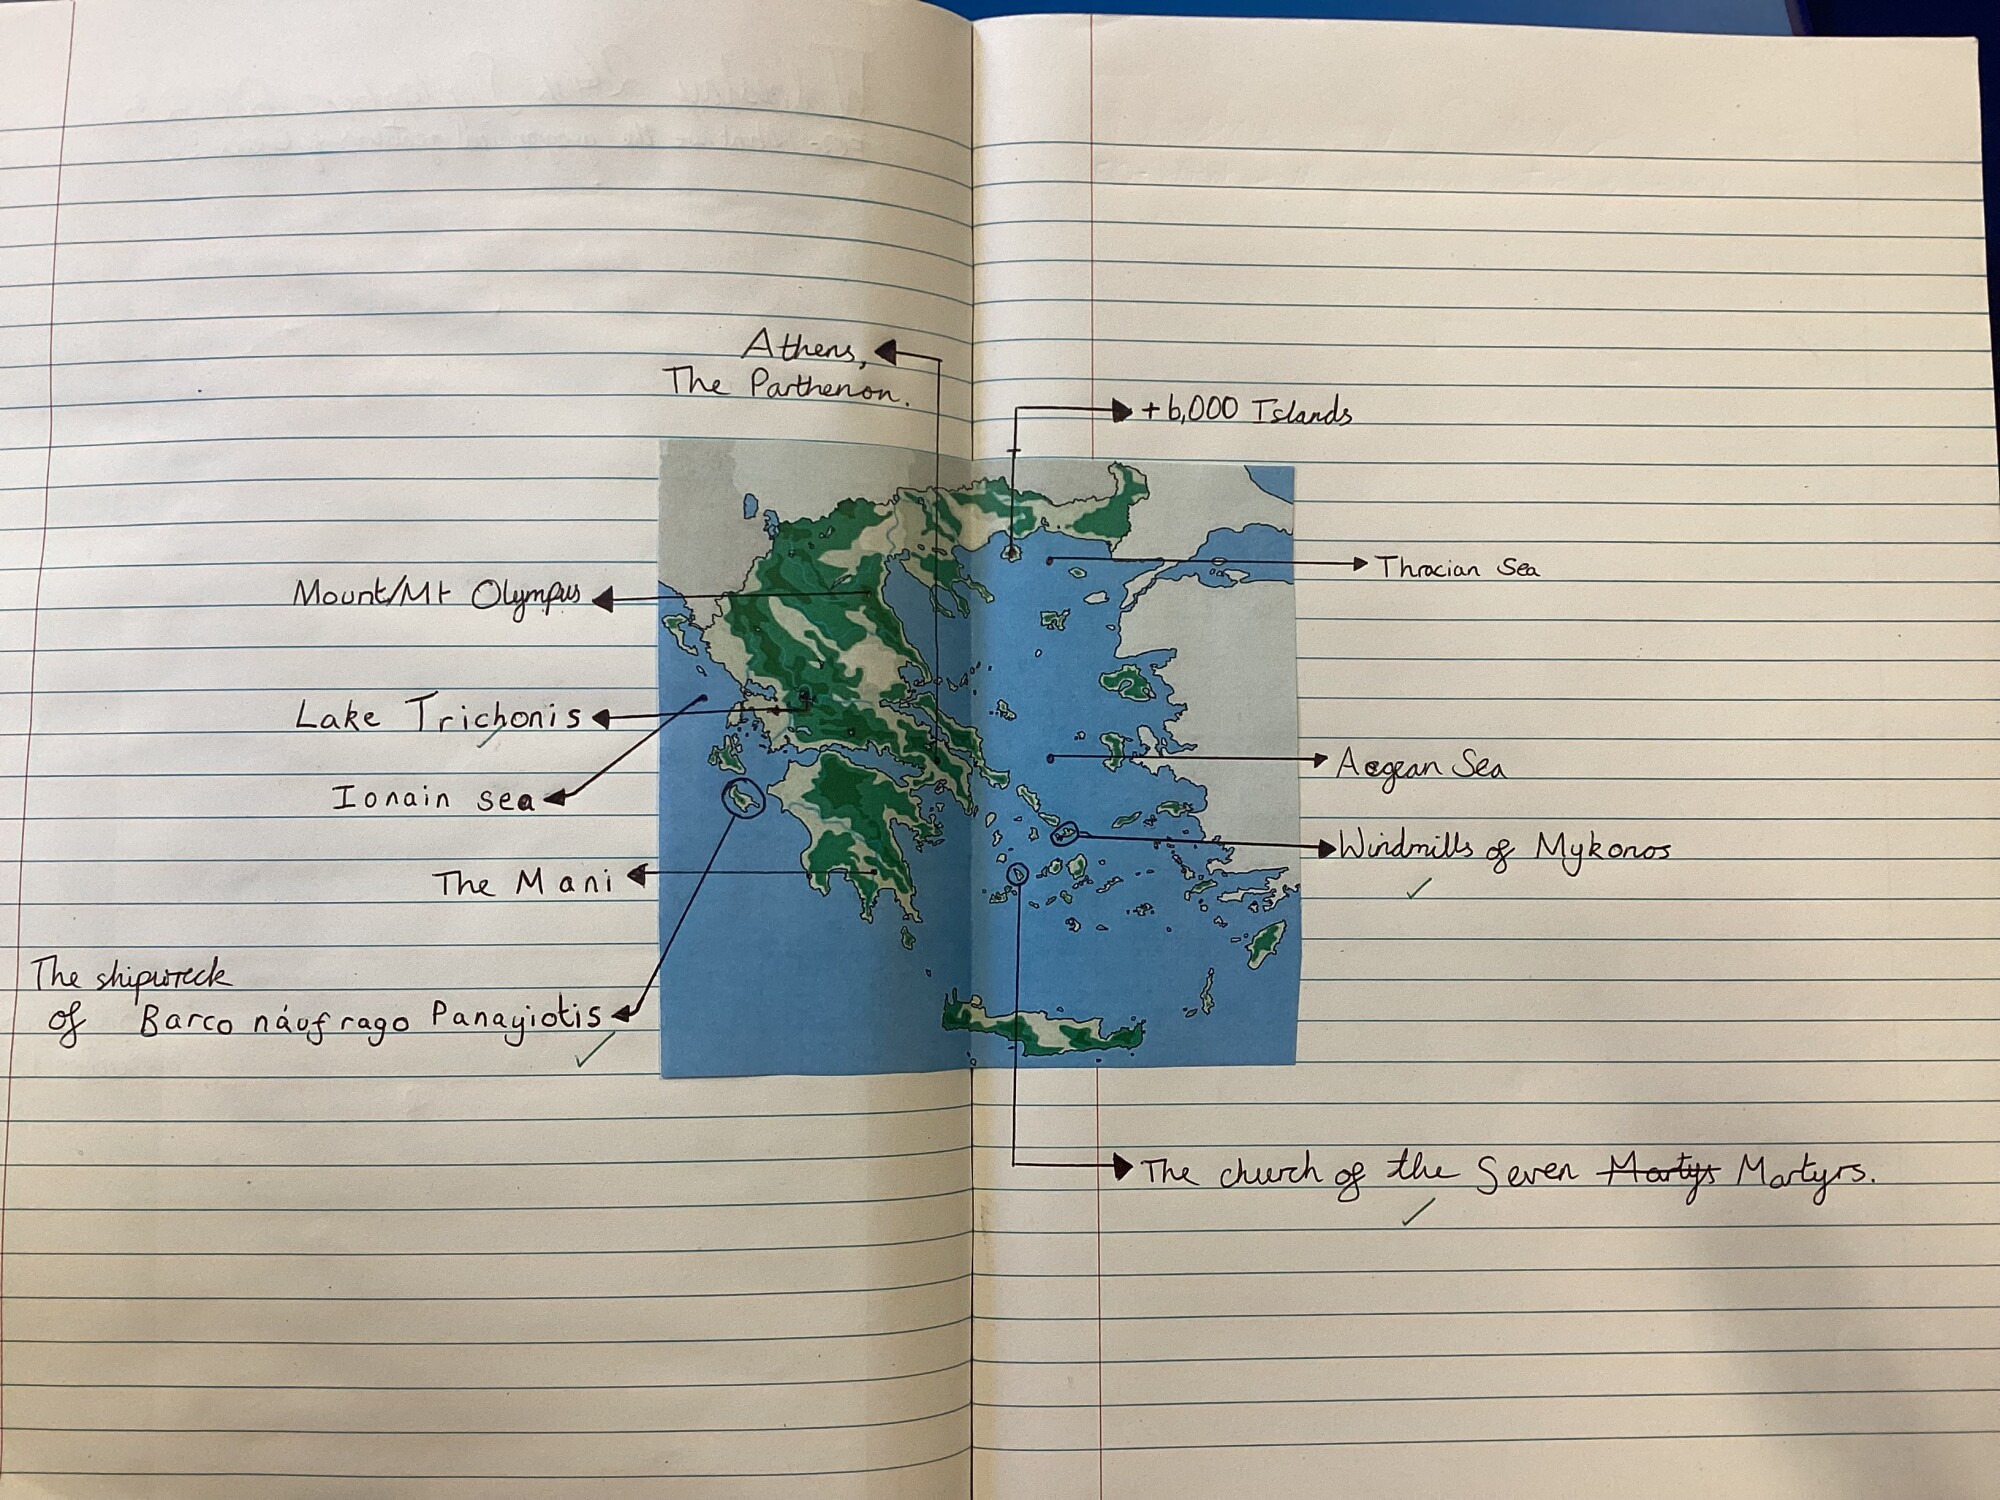 Athens,
The Parthenon.
+6,000 Islands
Thracian Sea
Mount/Mt Olympus
Lake Trichonis
Ionain sea
Aegean Sea
Windmills of Mykonos
The Mani
The shipwreck
of Barco náufrago Panayiotis
The church of the Seven Martys Martyrs.